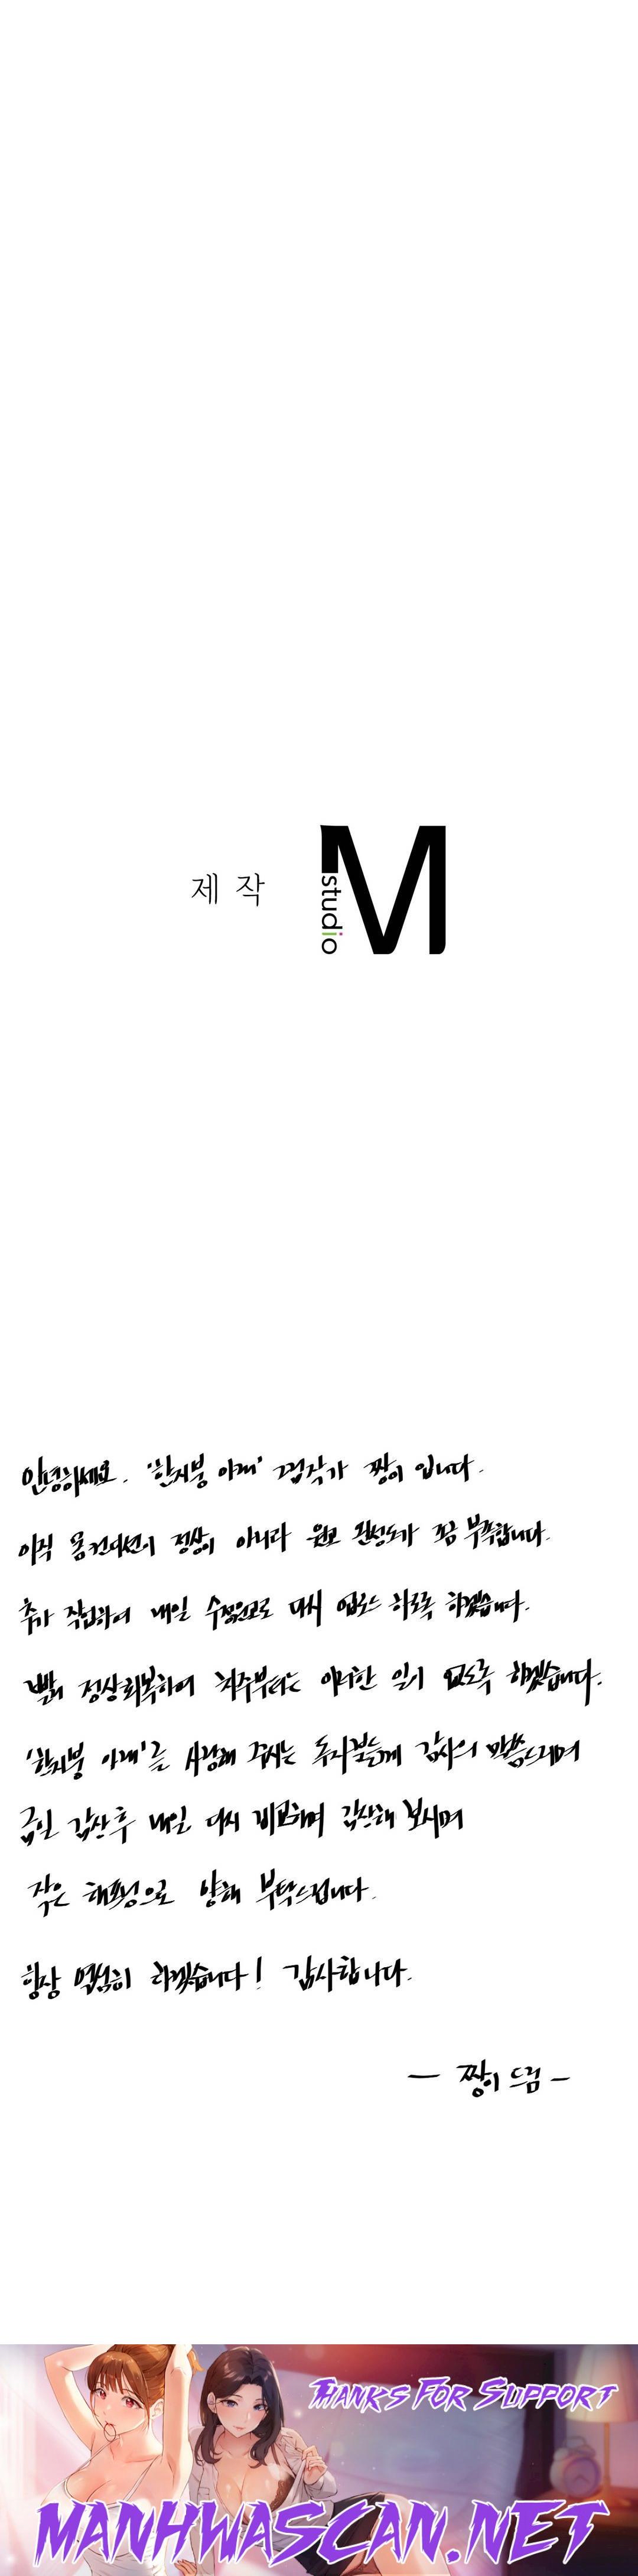 제 작
M
studio
안녕하세요. '한지붕 아래' 그림작가 짱이 입니다.
아직 몸 컨디션이 정상이 아니라 원고 완성도가 조금 부족합니다.
추가 작업하여 내일 수정원고로 다시 업로드 하도록 하겠습니다.
빨리 정상회복하여 차주부터는 이러한 일이 없도록 하겠습니다.
'한지붕 아래'를 사랑해 주시는 독자분들께 감사의 말씀드리며
금일 감상 후 내일 다시 비교하며 감상해 보시며
작은 해프닝으로 양해 부탁드립니다.
항상 열심히 하겠습니다! 감사합니다.
- 짱이 드림 -
THANKS FOR SUPPORT
MANHWASCAN.NET